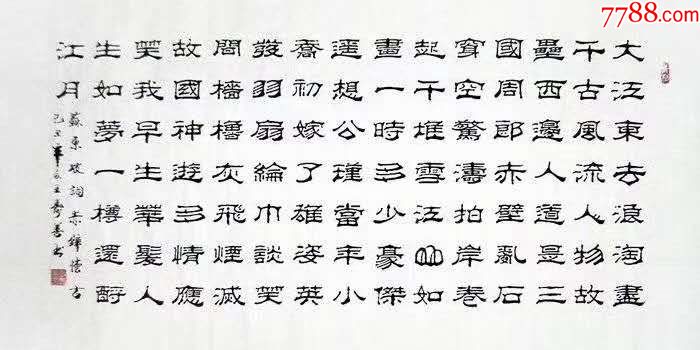 7788.com
大江東去浪淘盡
千古風流人物故
壘西邊人道是三
國周郎赤壁亂石
穿空驚濤拍岸卷
起千堆雪江山如
畫一時多少豪傑
遥想公瑾當年小
喬初嫁了雄姿英
發羽扇綸巾談笑
間檣櫓灰飛煙滅
故國神遊多情應
笑我早生華髮人
生如夢一樽還酹
江月
蘇東坡詞赤壁懷古
己丑王書